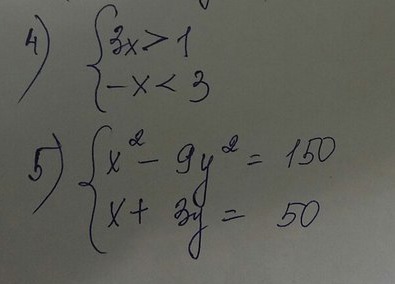 4) { 3x > 1
-x < 3
5) { x² - 9y² = 150
x + 3y = 50